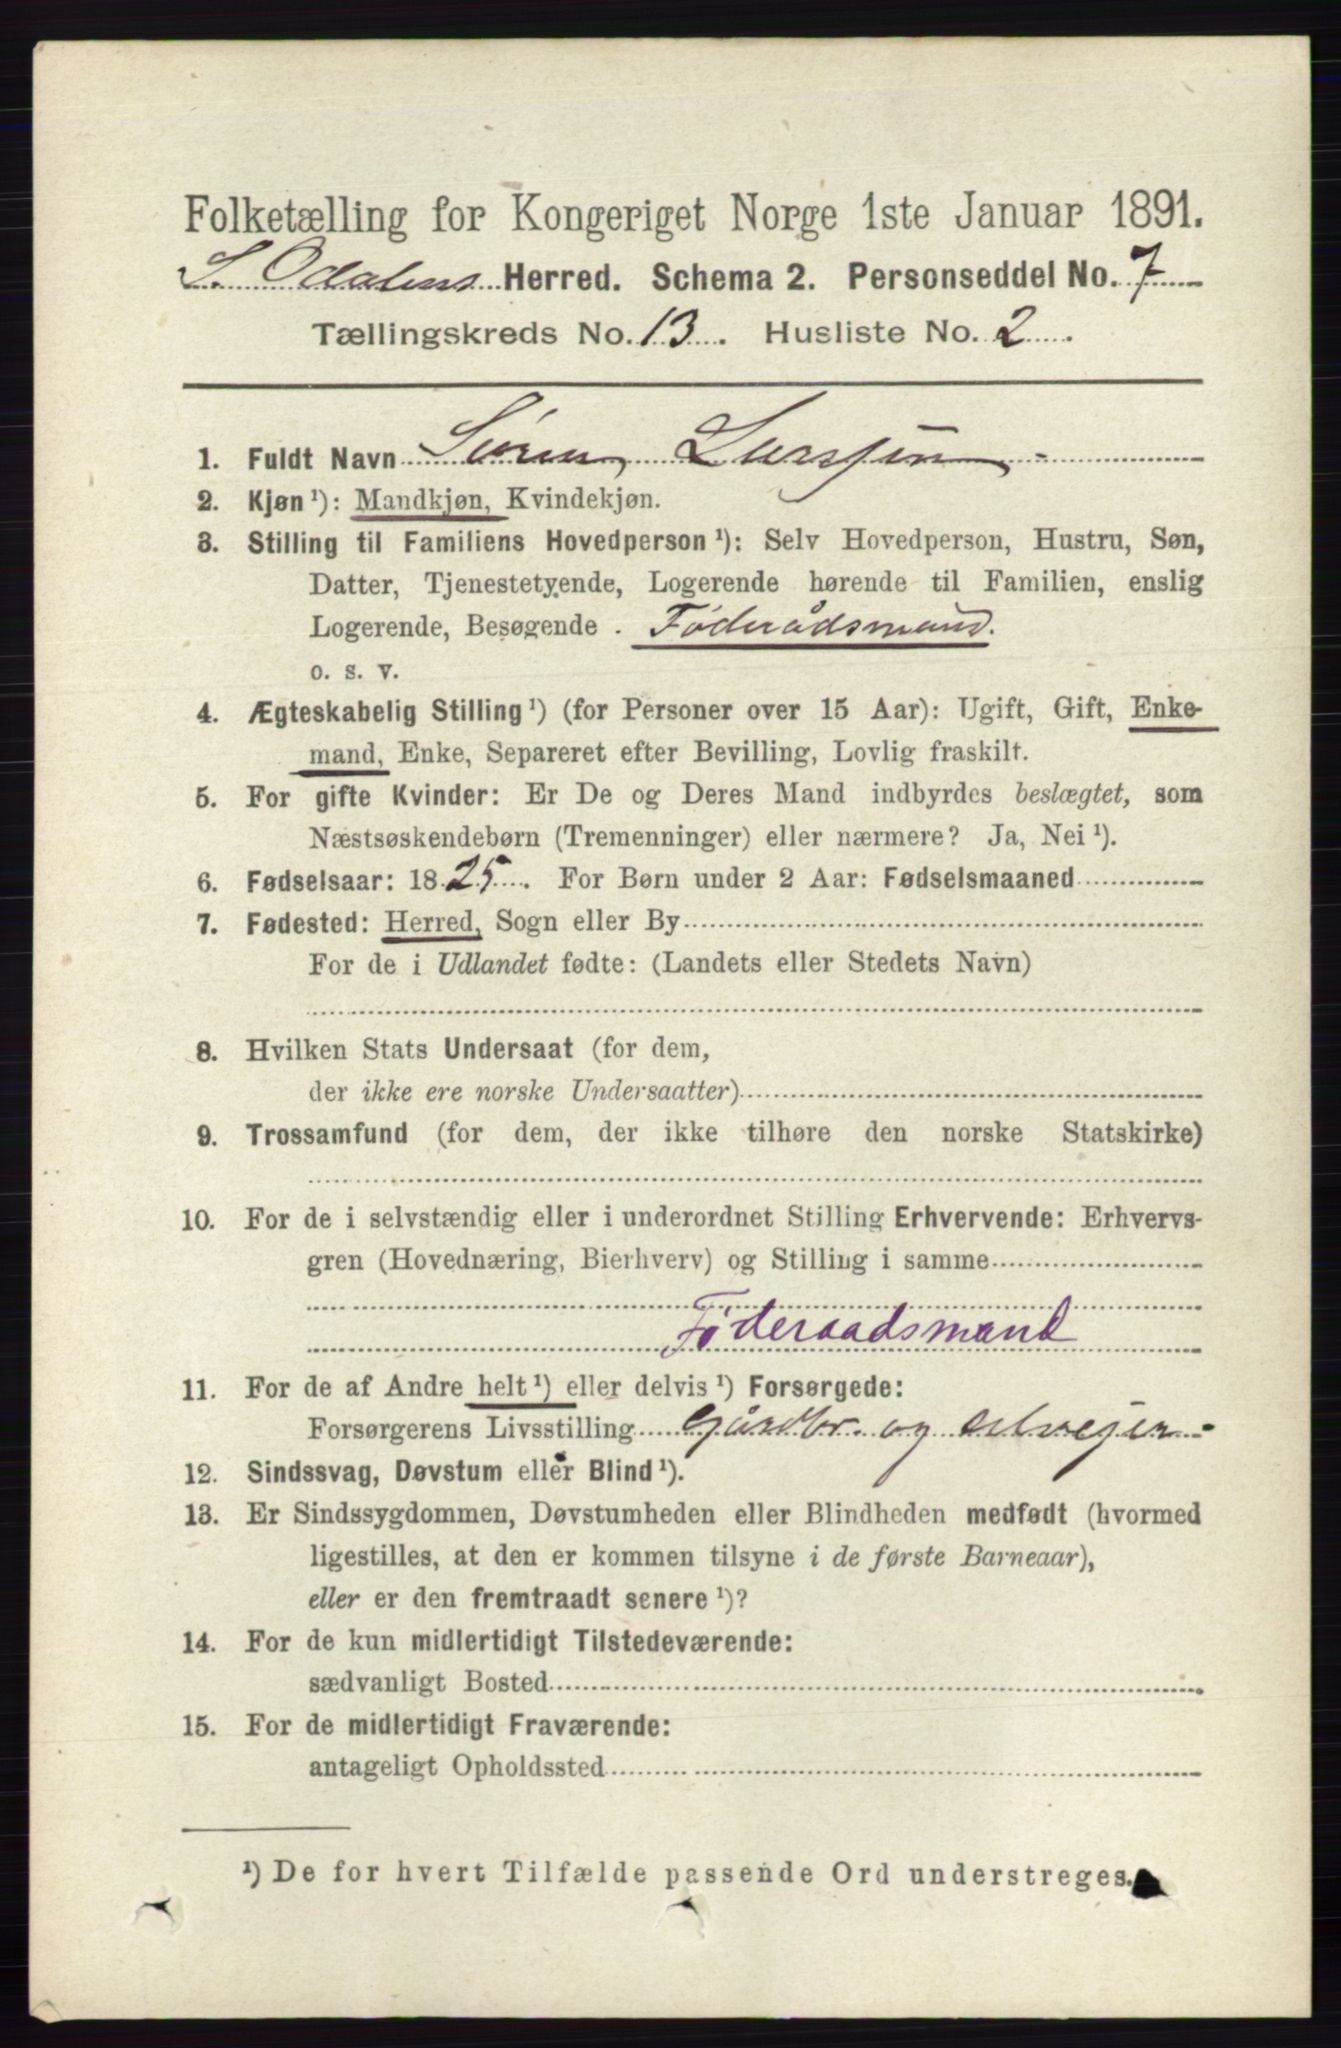 Folketælling for Kongeriget Norge 1ste Januar 1891.
S. Odalens Herred. Schema 2. Personseddel No. 7
Tællingskreds No. 13. Husliste No. 2.
1. Fuldt Navn Søren Larssen
2. Kjøn¹): Mandkjøn, Kvindekjøn.
3. Stilling til Familiens Hovedperson¹): Selv Hovedperson, Hustru, Søn,
Datter, Tjenestetyende, Logerende hørende til Familien, enslig
Logerende, Besøgende. Føderådsmand.
o. s. v.
4. Ægteskabelig Stilling¹) (for Personer over 15 Aar): Ugift, Gift, Enke-
mand, Enke, Separeret efter Bevilling, Lovlig fraskilt.
5. For gifte Kvinder: Er De og Deres Mand indbyrdes beslægtet, som
Næstsøskendebørn (Tremenninger) eller nærmere? Ja, Nei¹).
6. Fødselsaar: 1825. For Børn under 2 Aar: Fødselsmaaned
7. Fødested: Herred, Sogn eller By
For de i Udlandet fødte: (Landets eller Stedets Navn)
8. Hvilken Stats Undersaat (for dem,
der ikke ere norske Undersaatter)
9. Trossamfund (for dem, der ikke tilhøre den norske Statskirke)
10. For de i selvstændig eller i underordnet Stilling Erhvervende: Erhvervs-
gren (Hovednæring, Bierhverv) og Stilling i samme
Føderaadsmand
11. For de af Andre helt¹) eller delvis¹) Forsørgede:
Forsørgerens Livsstilling Gårdbr. og selvejer
12. Sindssvag, Døvstum eller Blind¹).
13. Er Sindssygdommen, Døvstumheden eller Blindheden medfødt (hvormed
ligestilles, at den er kommen tilsyne i de første Barneaar),
eller er den fremtraadt senere¹)?
14. For de kun midlertidigt Tilstedeværende:
sædvanligt Bosted
15. For de midlertidigt Fraværende:
antageligt Opholdssted
¹) De for hvert Tilfælde passende Ord understreges.